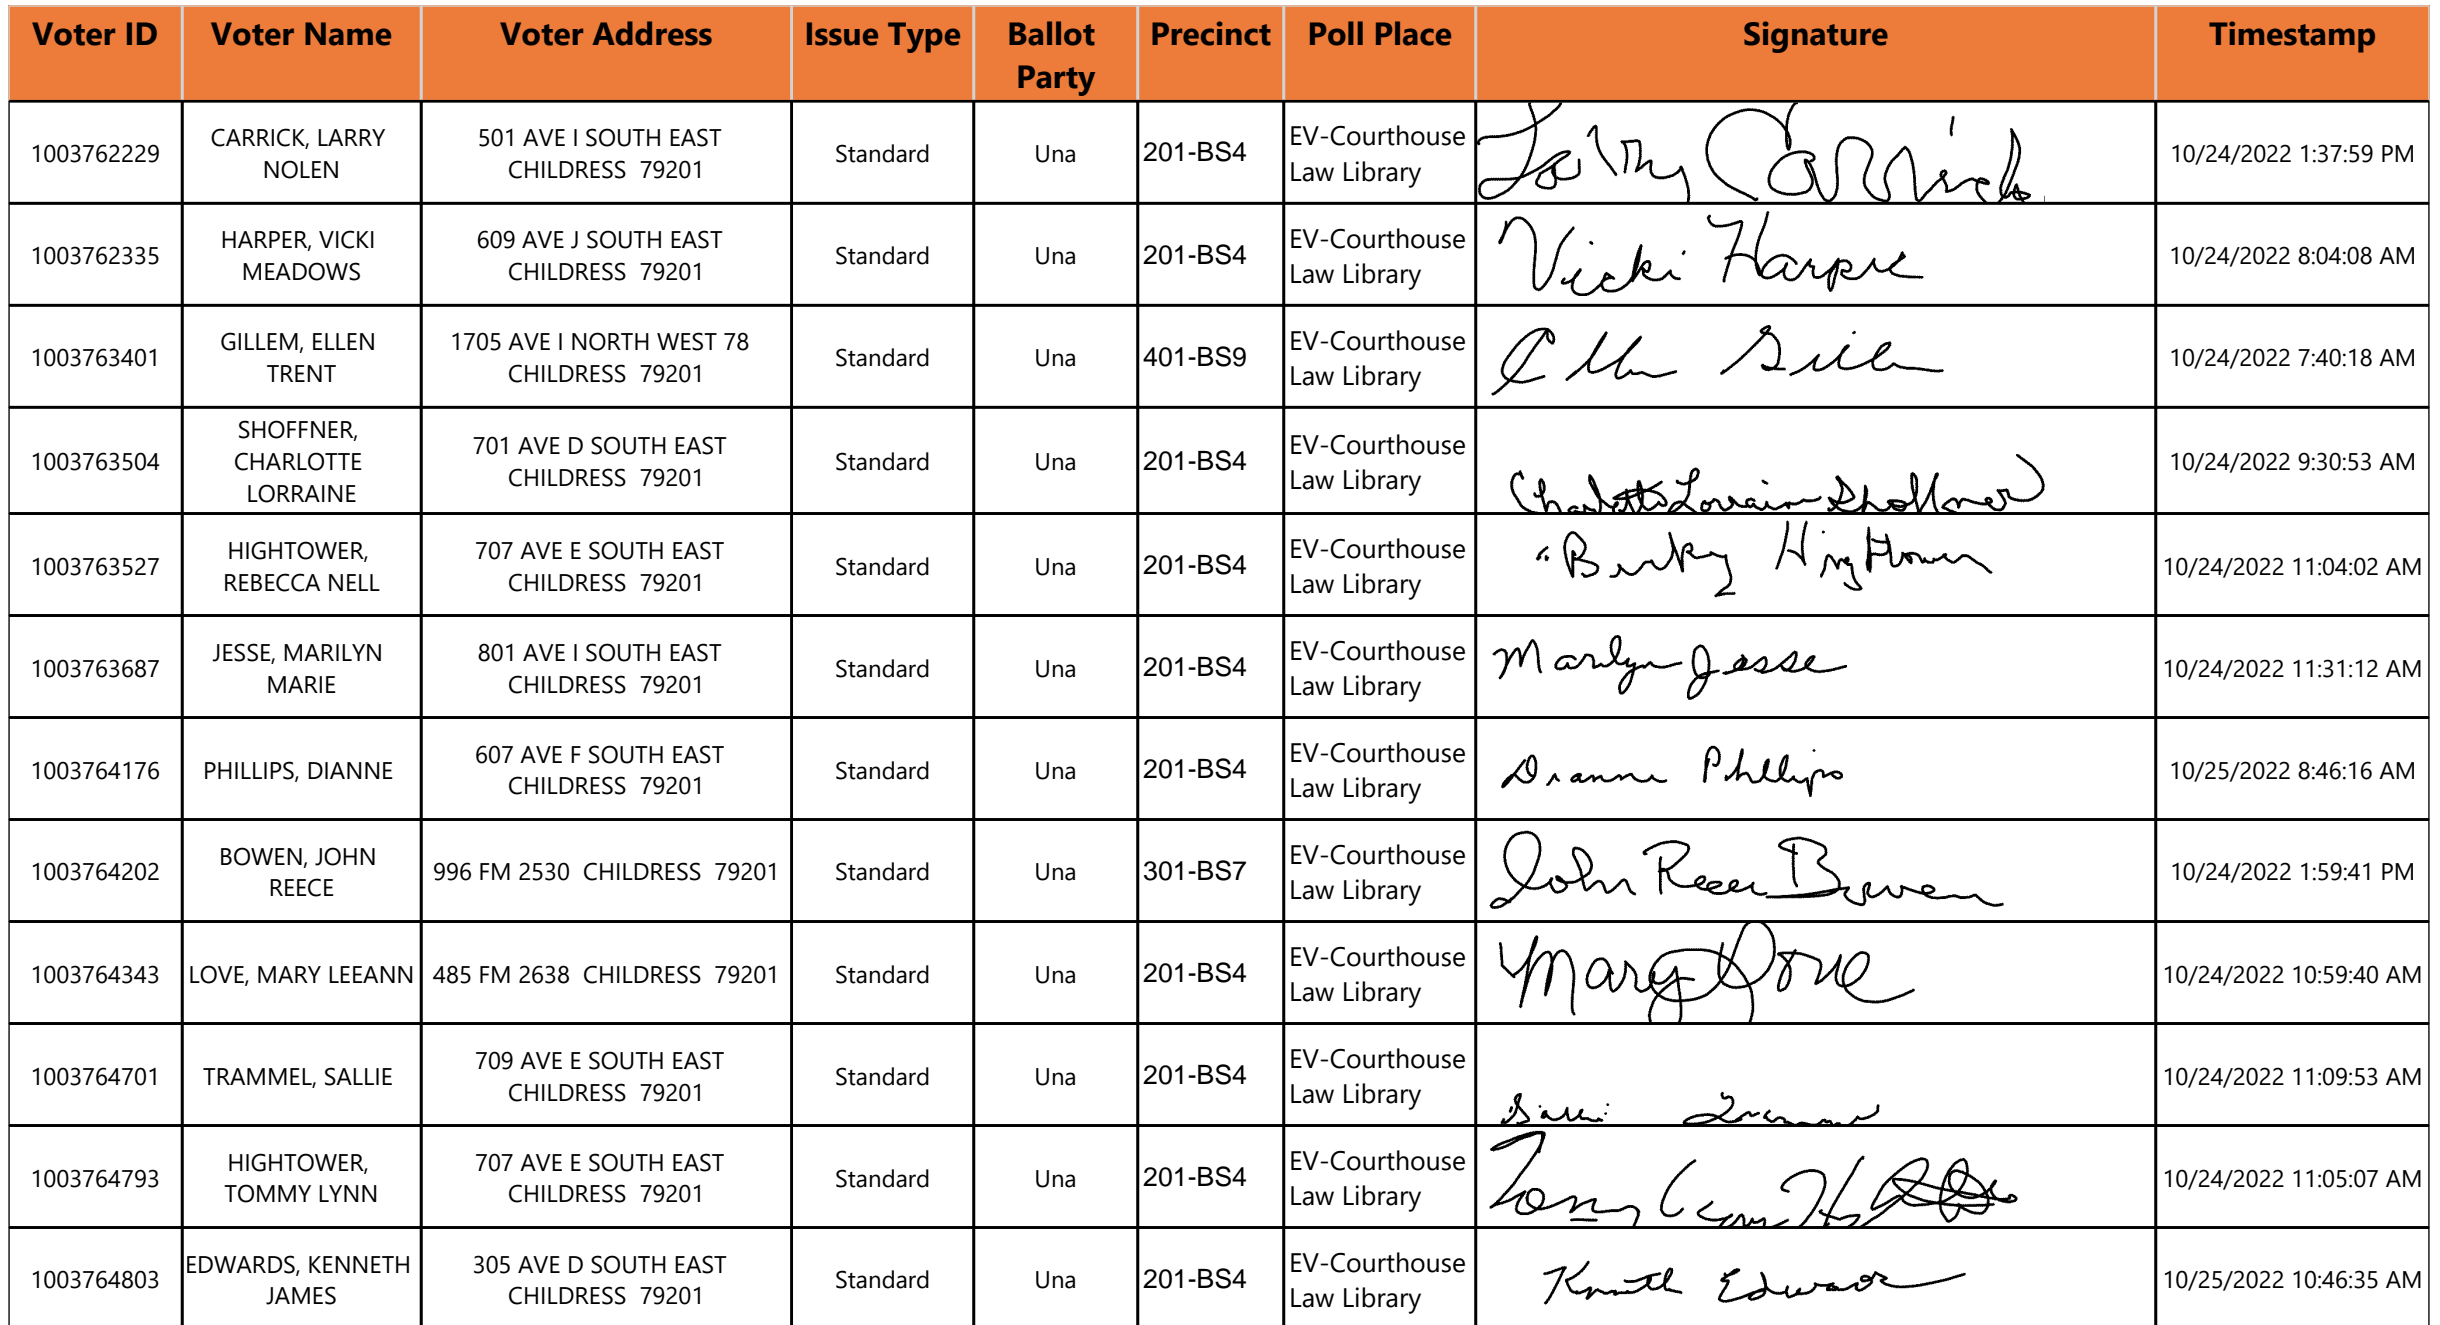 Voter ID Voter Name Voter Address Issue Type Ballot Party Precinct Poll Place Signature Timestamp
1003762229 CARRICK, LARRY NOLEN 501 AVE I SOUTH EAST CHILDRESS 79201 Standard Una 201-BS4 EV-Courthouse Law Library Larry Carrick 10/24/2022 1:37:59 PM
1003762335 HARPER, VICKI MEADOWS 609 AVE J SOUTH EAST CHILDRESS 79201 Standard Una 201-BS4 EV-Courthouse Law Library Vicki Harper 10/24/2022 8:04:08 AM
1003763401 GILLEM, ELLEN TRENT 1705 AVE I NORTH WEST 78 CHILDRESS 79201 Standard Una 401-BS9 EV-Courthouse Law Library 10/24/2022 7:40:18 AM
1003763504 SHOFFNER, CHARLOTTE LORRAINE 701 AVE D SOUTH EAST CHILDRESS 79201 Standard Una 201-BS4 EV-Courthouse Law Library Charlotte Lorraine Shoffner 10/24/2022 9:30:53 AM
1003763527 HIGHTOWER, REBECCA NELL 707 AVE E SOUTH EAST CHILDRESS 79201 Standard Una 201-BS4 EV-Courthouse Law Library Becky Hightower 10/24/2022 11:04:02 AM
1003763687 JESSE, MARILYN MARIE 801 AVE I SOUTH EAST CHILDRESS 79201 Standard Una 201-BS4 EV-Courthouse Law Library Marilyn Jesse 10/24/2022 11:31:12 AM
1003764176 PHILLIPS, DIANNE 607 AVE F SOUTH EAST CHILDRESS 79201 Standard Una 201-BS4 EV-Courthouse Law Library Dianne Phillips 10/25/2022 8:46:16 AM
1003764202 BOWEN, JOHN REECE 996 FM 2530 CHILDRESS 79201 Standard Una 301-BS7 EV-Courthouse Law Library John Reece Bowen 10/24/2022 1:59:41 PM
1003764343 LOVE, MARY LEEANN 485 FM 2638 CHILDRESS 79201 Standard Una 201-BS4 EV-Courthouse Law Library Mary Love 10/24/2022 10:59:40 AM
1003764701 TRAMMEL, SALLIE 709 AVE E SOUTH EAST CHILDRESS 79201 Standard Una 201-BS4 EV-Courthouse Law Library Sallie 10/24/2022 11:09:53 AM
1003764793 HIGHTOWER, TOMMY LYNN 707 AVE E SOUTH EAST CHILDRESS 79201 Standard Una 201-BS4 EV-Courthouse Law Library Tommy Lynn 10/24/2022 11:05:07 AM
1003764803 EDWARDS, KENNETH JAMES 305 AVE D SOUTH EAST CHILDRESS 79201 Standard Una 201-BS4 EV-Courthouse Law Library Kenneth Edwards 10/25/2022 10:46:35 AM